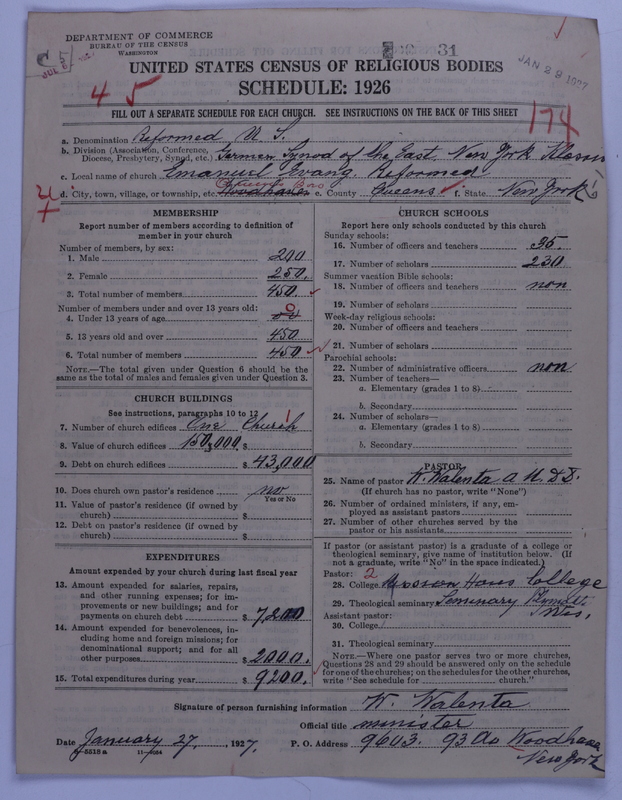 DEPARTMENT OF COMMERCE
BUREAU OF THE CENSUS
WASHINGTON
31
JAN 29 1927
UNITED STATES CENSUS OF RELIGIOUS BODIES
SCHEDULE: 1926
4 5
174
FILL OUT A SEPARATE SCHEDULE FOR EACH CHURCH. SEE INSTRUCTIONS ON THE BACK OF THIS SHEET
a. Denomination Reformed U. S.
b. Division (Association, Conference, Diocese, Presbytery, Synod, etc.) German Synod of the East, New York Klassis
c. Local name of church Emanuel Evang. Reformed
d. City, town, village, or township, etc. Woodhaven Queens Boro e. County Queens f. State New York
MEMBERSHIP
Report number of members according to definition of
member in your church
Number of members, by sex:
1. Male 200
2. Female 250.
3. Total number of members 450.
Number of members under and over 13 years old:
4. Under 13 years of age 0
5. 13 years old and over 450
6. Total number of members 450
NOTE.—The total given under Question 6 should be the
same as the total of males and females given under Question 3.
CHURCH BUILDINGS
See instructions, paragraphs 10 to 13
7. Number of church edifices One Church 1
8. Value of church edifices 150,000. $
9. Debt on church edifices $ 43,000
10. Does church own pastor's residence no
Yes or No
11. Value of pastor's residence (if owned by
church) $
12. Debt on pastor's residence (if owned by
church) $
EXPENDITURES
Amount expended by your church during last fiscal year
13. Amount expended for salaries, repairs,
and other running expenses; for im-
provements or new buildings; and for
payments on church debt $ 7,200
14. Amount expended for benevolences, in-
cluding home and foreign missions; for
denominational support; and for all
other purposes $ 2000.
15. Total expenditures during year $ 9200.
CHURCH SCHOOLS
Report here only schools conducted by this church
Sunday schools:
16. Number of officers and teachers 35.
17. Number of scholars 230
Summer vacation Bible schools:
18. Number of officers and teachers non
19. Number of scholars
Week-day religious schools:
20. Number of officers and teachers
21. Number of scholars
Parochial schools:
22. Number of administrative officers non
23. Number of teachers—
a. Elementary (grades 1 to 8)
b. Secondary
24. Number of scholars—
a. Elementary (grades 1 to 8)
b. Secondary
PASTOR
25. Name of pastor W. Walenta
(If church has no pastor, write "None")
26. Number of ordained ministers, if any, em-
ployed as assistant pastors
27. Number of other churches served by the
pastor or his assistants
If pastor (or assistant pastor) is a graduate of a college or
theological seminary, give name of institution below. (If
not a graduate, write "No" in the space indicated.)
Pastor: 2
28. College Mission Haus College
29. Theological seminary Seminary Plymouth
Wis.
Assistant pastor:
30. College
31. Theological seminary
NOTE.—Where one pastor serves two or more churches,
Questions 28 and 29 should be answered only on the schedule
for one of the churches; on the schedules for the other churches,
write "See schedule for church."
Signature of person furnishing information W. Walenta
Official title minister
Date January 27, 1927. P. O. Address 9603. 93 Av Woodhaven
New York